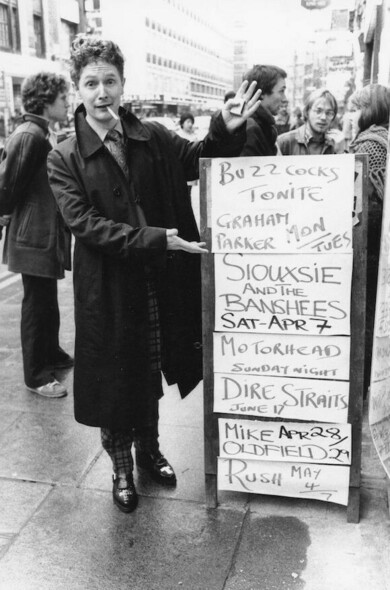 BUZZCOCKS
TONITE
GRAHAM
PARKER MON
TUES
SIOUXSIE
AND THE
BANSHEES
SAT-APR 7
MOTORHEAD
SUNDAY NIGHT
DIRE STRAITS
JUNE 17
MIKE APR 28/
OLDFIELD 29
RUSH MAY
4/7